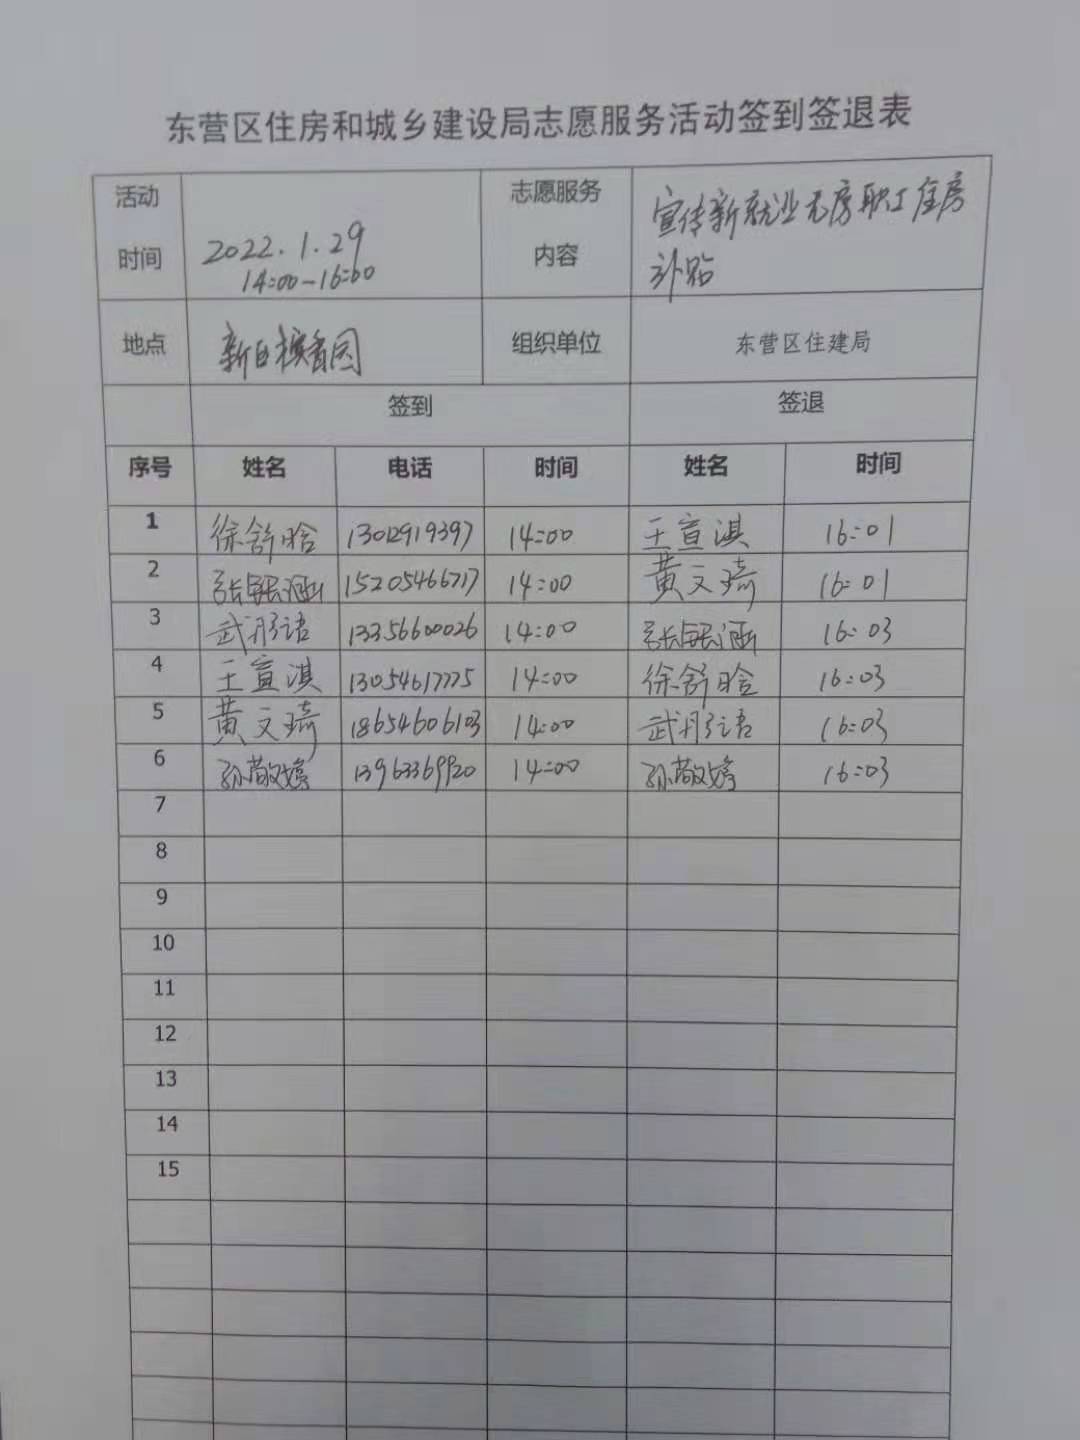 东营区住房和城乡建设局志愿服务活动签到签退表
活动时间 2022.1.29 14:00-16:00 志愿服务内容 宣传新就业无房职工住房补贴
地点 新 香园 组织单位 东营区住建局
签到 签退
序号 姓名 电话 时间 姓名 时间
1 徐舒晗 13012919397 14:00 王宣淇 16:01
2 张钰涵 15205466717 14:00 黄文琦 16:01
3 武彤语 13356600026 14:00 张钰涵 16:03
4 王宣淇 13054617775 14:00 徐舒晗 16:03
5 黄文琦 18654606103 14:00 武彤语 16:03
6 孙敬婷 13963369920 14:00 孙敬婷 16:03
7
8
9
10
11
12
13
14
15